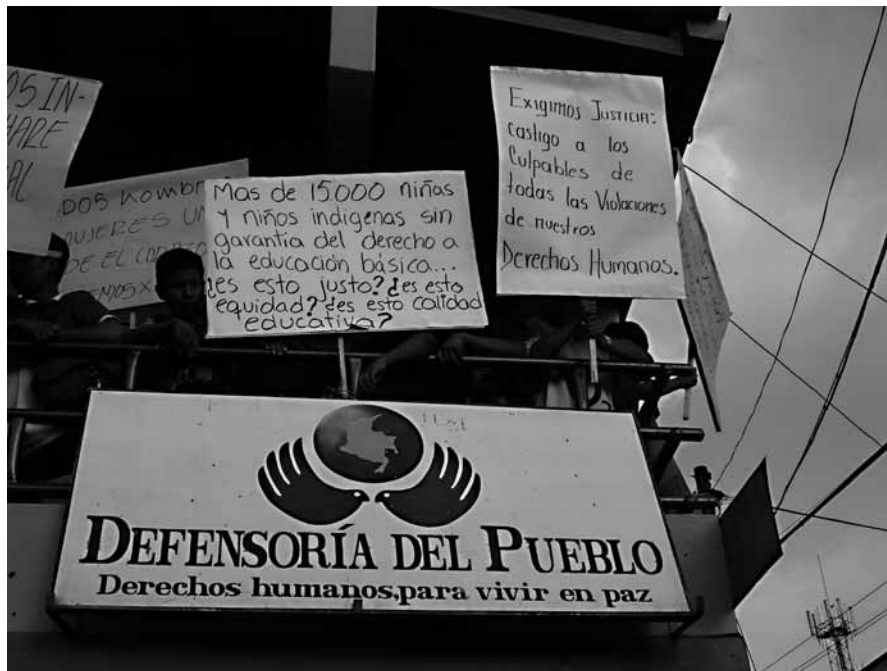 OS IN-
HARE
AL
DOS HOMBR
MUJERES UN
DE EL
Mas de 15.000 niñas
y niños indigenas sin
garantia del derecho a
la educación básica...
¿es esto justo? ¿es esto
equidad? ¿es esto calidad
educativa?
Exigimos Justicia:
castigo a los
Culpables de
todas las Violaciones
de nuestros
Derechos Humanos.
DEFENSORÍA DEL PUEBLO
Derechos humanos, para vivir en paz